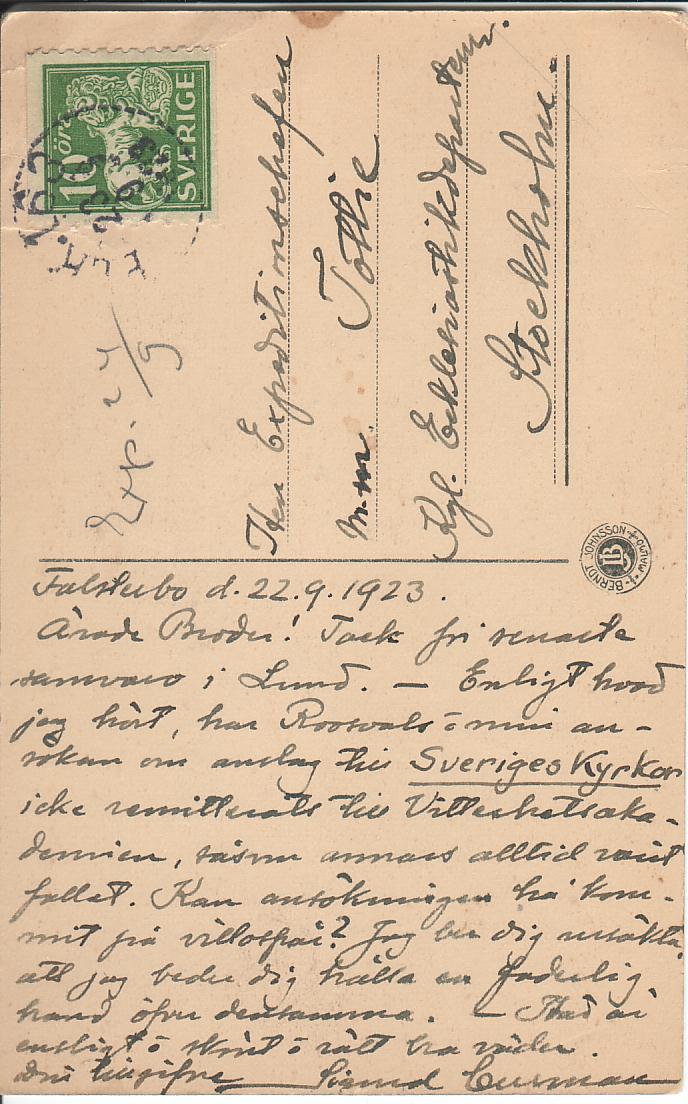 10 öre
SVERIGE
23 9 23
Exp. 24/9
Herr Expeditionschefen
m.m. Tottie
Kgl. Ecklesiastikdepartem.
Stockholm.
BERNDT JOHNSSON MALMÖ
Falsterbo d. 22.9.1923.
Ärade Broder! Tack för senaste
samvaro i Lund. — Enligt hvad
jag hört, har Roosvals o min an-
sökan om anslag till Sveriges Kyrkor
icke remitterats till Vitterhetsaka-
demien, såsom annars alltid varit
fallet. Kan ansökningen ha kom-
mit på villospår? Jag ber dig ursäkta
att jag beder dig hålla en faderlig
hand öfver densamma. — Här är
ensligt o skönt o rätt bra väder.
Din tillgifne Sigurd Curman